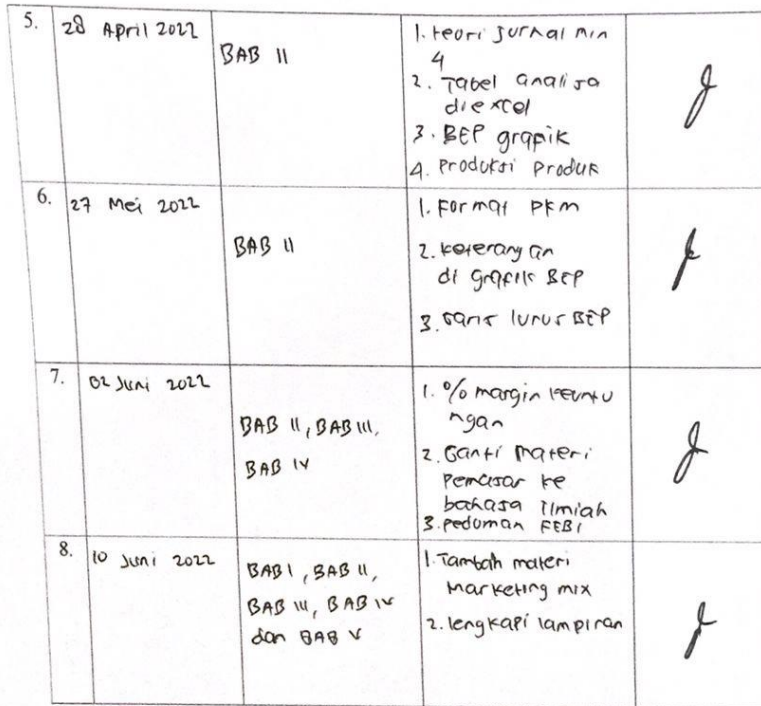 5. 28 April 2022
BAB II
1. teori jurnal min
4
2. Tabel analisa
di excel
3. BEP grafik
4. produksi produk
6. 27 Mei 2022
BAB II
1. Format PKM
2. keterangan
di grafik BEP
3. Garis lurus BEP
7. 02 Juni 2022
BAB II, BAB III,
BAB IV
1. % margin keuntu
ngan
2. Ganti materi
pemasar ke
bahasa ilmiah
3. pedoman FEBI
8. 10 Juni 2022
BAB I, BAB II,
BAB III, BAB IV
dan BAB V
1. Tambah materi
Marketing mix
2. lengkapi lampiran